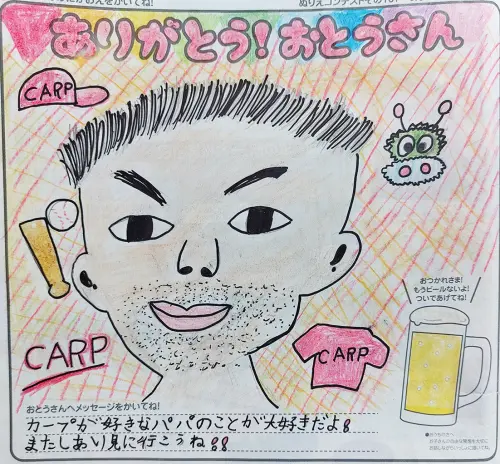 ありがとう!おとうさん
CARP
おつかれさま!
もうビールないよ!
ついであげてね!
CARP
CARP
おとうさんへメッセージをかいてね!
カープが好きなパパのことが大好きだよ!
またしあい見に行こうね!!